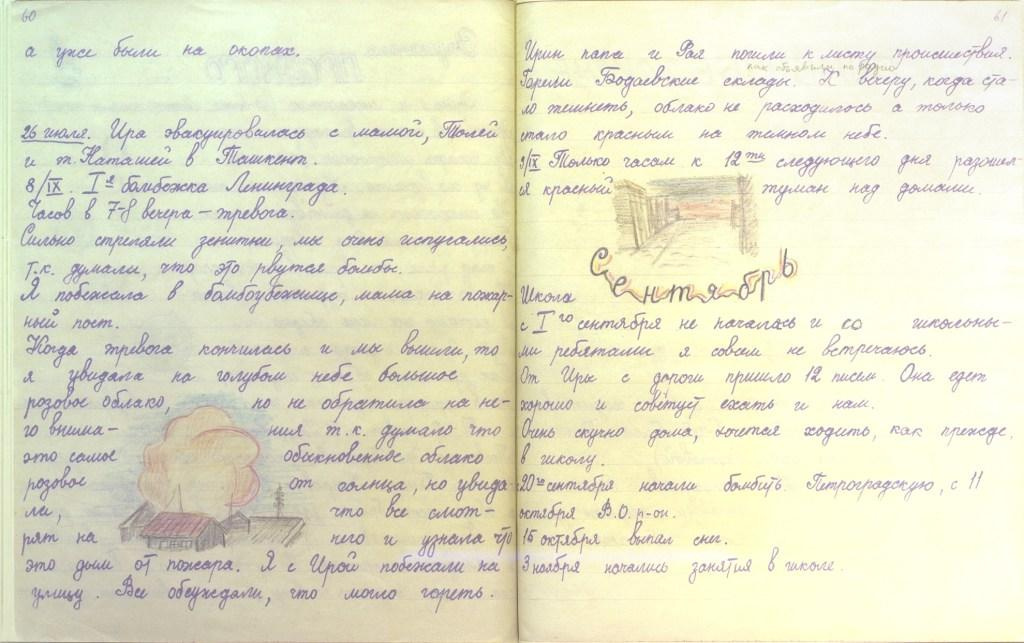 60
а уже были на окопах.
26 июля. Ира эвакуировалась с мамой, Толей
и т. Наташей в Ташкент.
8/IX. Iя бомбежка Ленинграда.
Часов в 7-8 вечера – тревога.
Сильно стреляли зенитки, мы очень испугались,
т.к. думали, что это рвутся бомбы.
Я побежала в бомбоубежище, мама на пожар-
ный пост.
Когда тревога кончилась и мы вышли, то
я увидала на голубом небе большое
розовое облако, но не обратила на не-
го внима- ния т.к. думала что
это самое обыкновенное облако
розовое от солнца, но увида-
ли, что все смот-
рят на него и узнала что
это дым от пожара. Я с Ирой побежали на
улицу. Все обсуждали, что могло гореть.
61
Ирин папа и Рая пошли к месту происшествия.
как объявили по радио
Горели Бодаевские склады. К вечеру, когда ста-
ло темнеть, облако не расходилось а только
стало красным на темном небе.
9/IX Только часам к 12ти следующего дня разошел-
ся красный туман над домами.
Сентябрь
Школа
с Iго сентября не началась и со школьны-
ми ребятами я совсем не встречаюсь.
От Иры с дороги пришло 12 писем. Она едет
хорошо и советует ехать и нам.
Очень скучно дома, хочется ходить, как прежде,
в школу.
20го сентября начали бомбить Петроградскую, с 11
октября В.О. р-он.
15 октября выпал снег.
3 ноября начались занятия в школе.